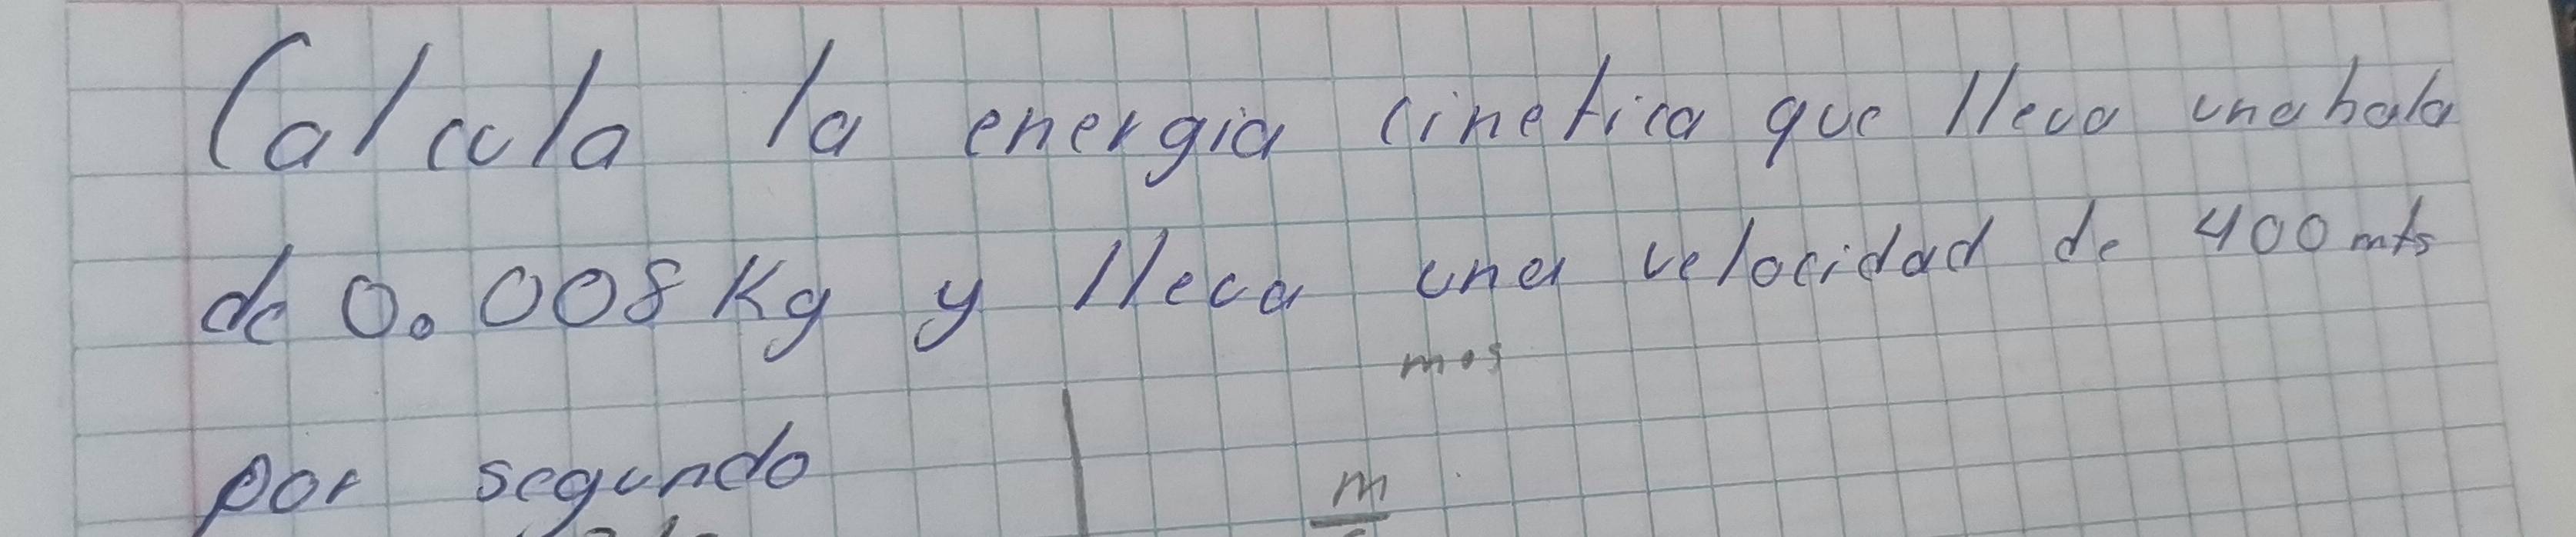 Calcula la energia cinetica que lleva una bala
de 0.008 Kg y lleva una velocidad de 400 mts
mos
por segundo
m